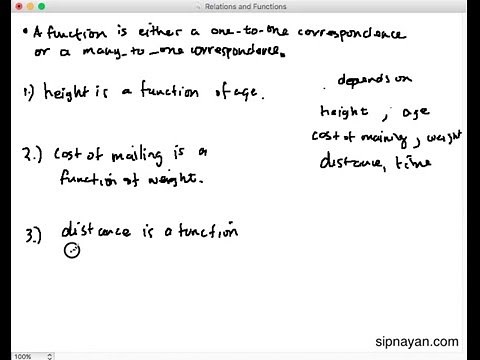 Relations and Functions
• A function is either a one-to-one correspondence
or a many-to-one correspondence.
1.) height is a function of age.
depends on
height, age
cost of mailing, weight
distance, time
2.) cost of mailing is a
function of weight.
3.) distance is a function
100%
sipnayan.com